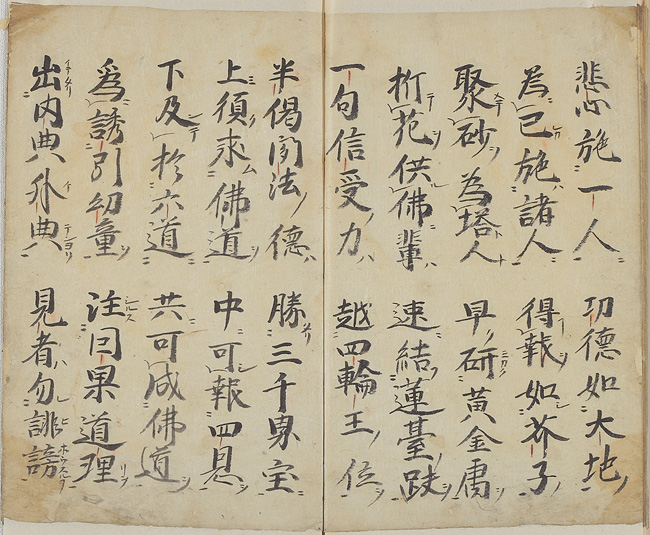 悲心施一人 功德如大地
為己施諸人 得報如芥子
聚砂為塔人 早研黄金膚
折花供佛輩 速結蓮臺趺
一句信受力 越四輪王位
半偈聞法德 勝三千界宝
上須求佛道 中可報四恩
下及於六道 共可成佛道
爲誘引幼童 注因果道理
出内典外典 見者勿誹謗